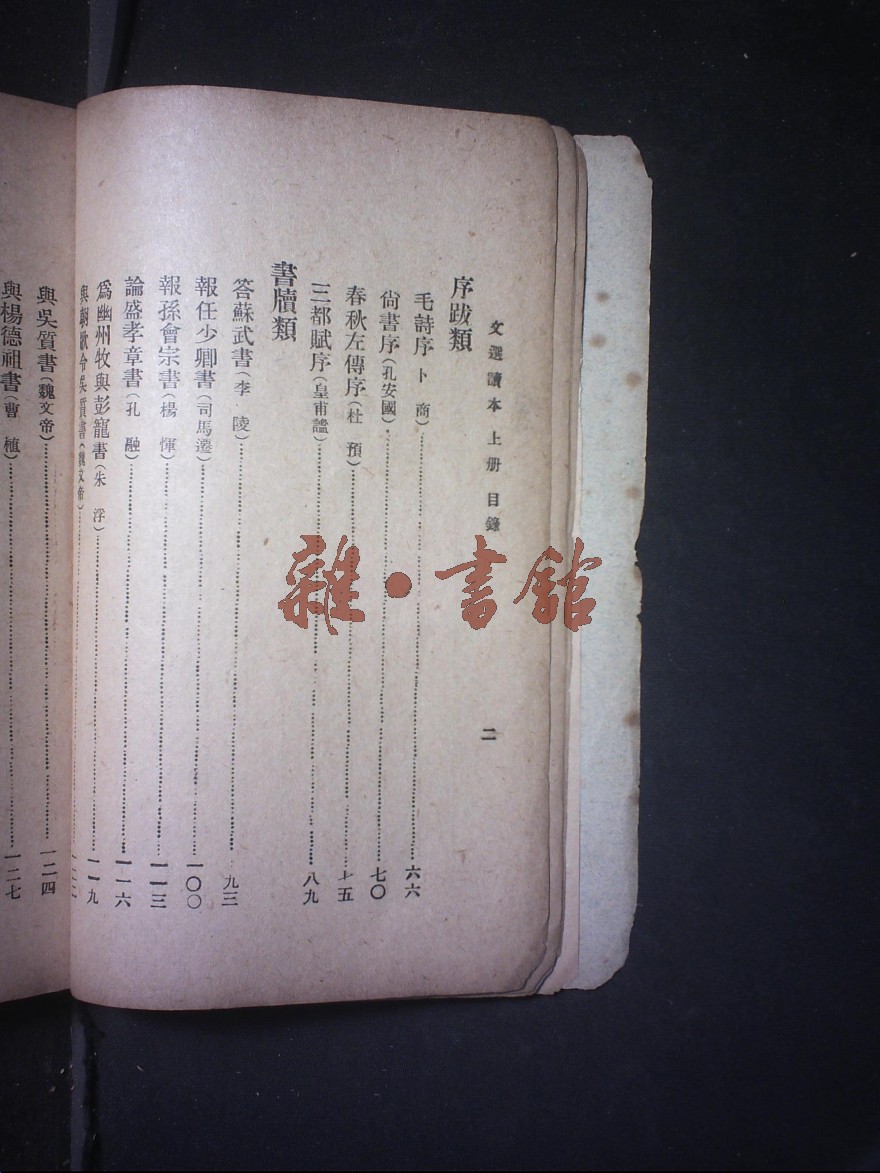 文選讀本 上册 目錄 二
序跋類
毛詩序(卜 商)……六六
尙書序(孔安國)……七〇
春秋左傳序(杜 預)……七五
三都賦序(皇甫謐)……八九
書牘類
答蘇武書(李 陵)……九三
報任少卿書(司馬遷)……一〇〇
報孫會宗書(楊 惲)……一一三
論盛孝章書(孔 融)……一一六
爲幽州牧與彭寵書(朱 浮)……一一九
與朝歌令吳質書(魏文帝)……一二二
與吳質書(魏文帝)……一二四
與楊德祖書(曹 植)……一二七
雜·書館